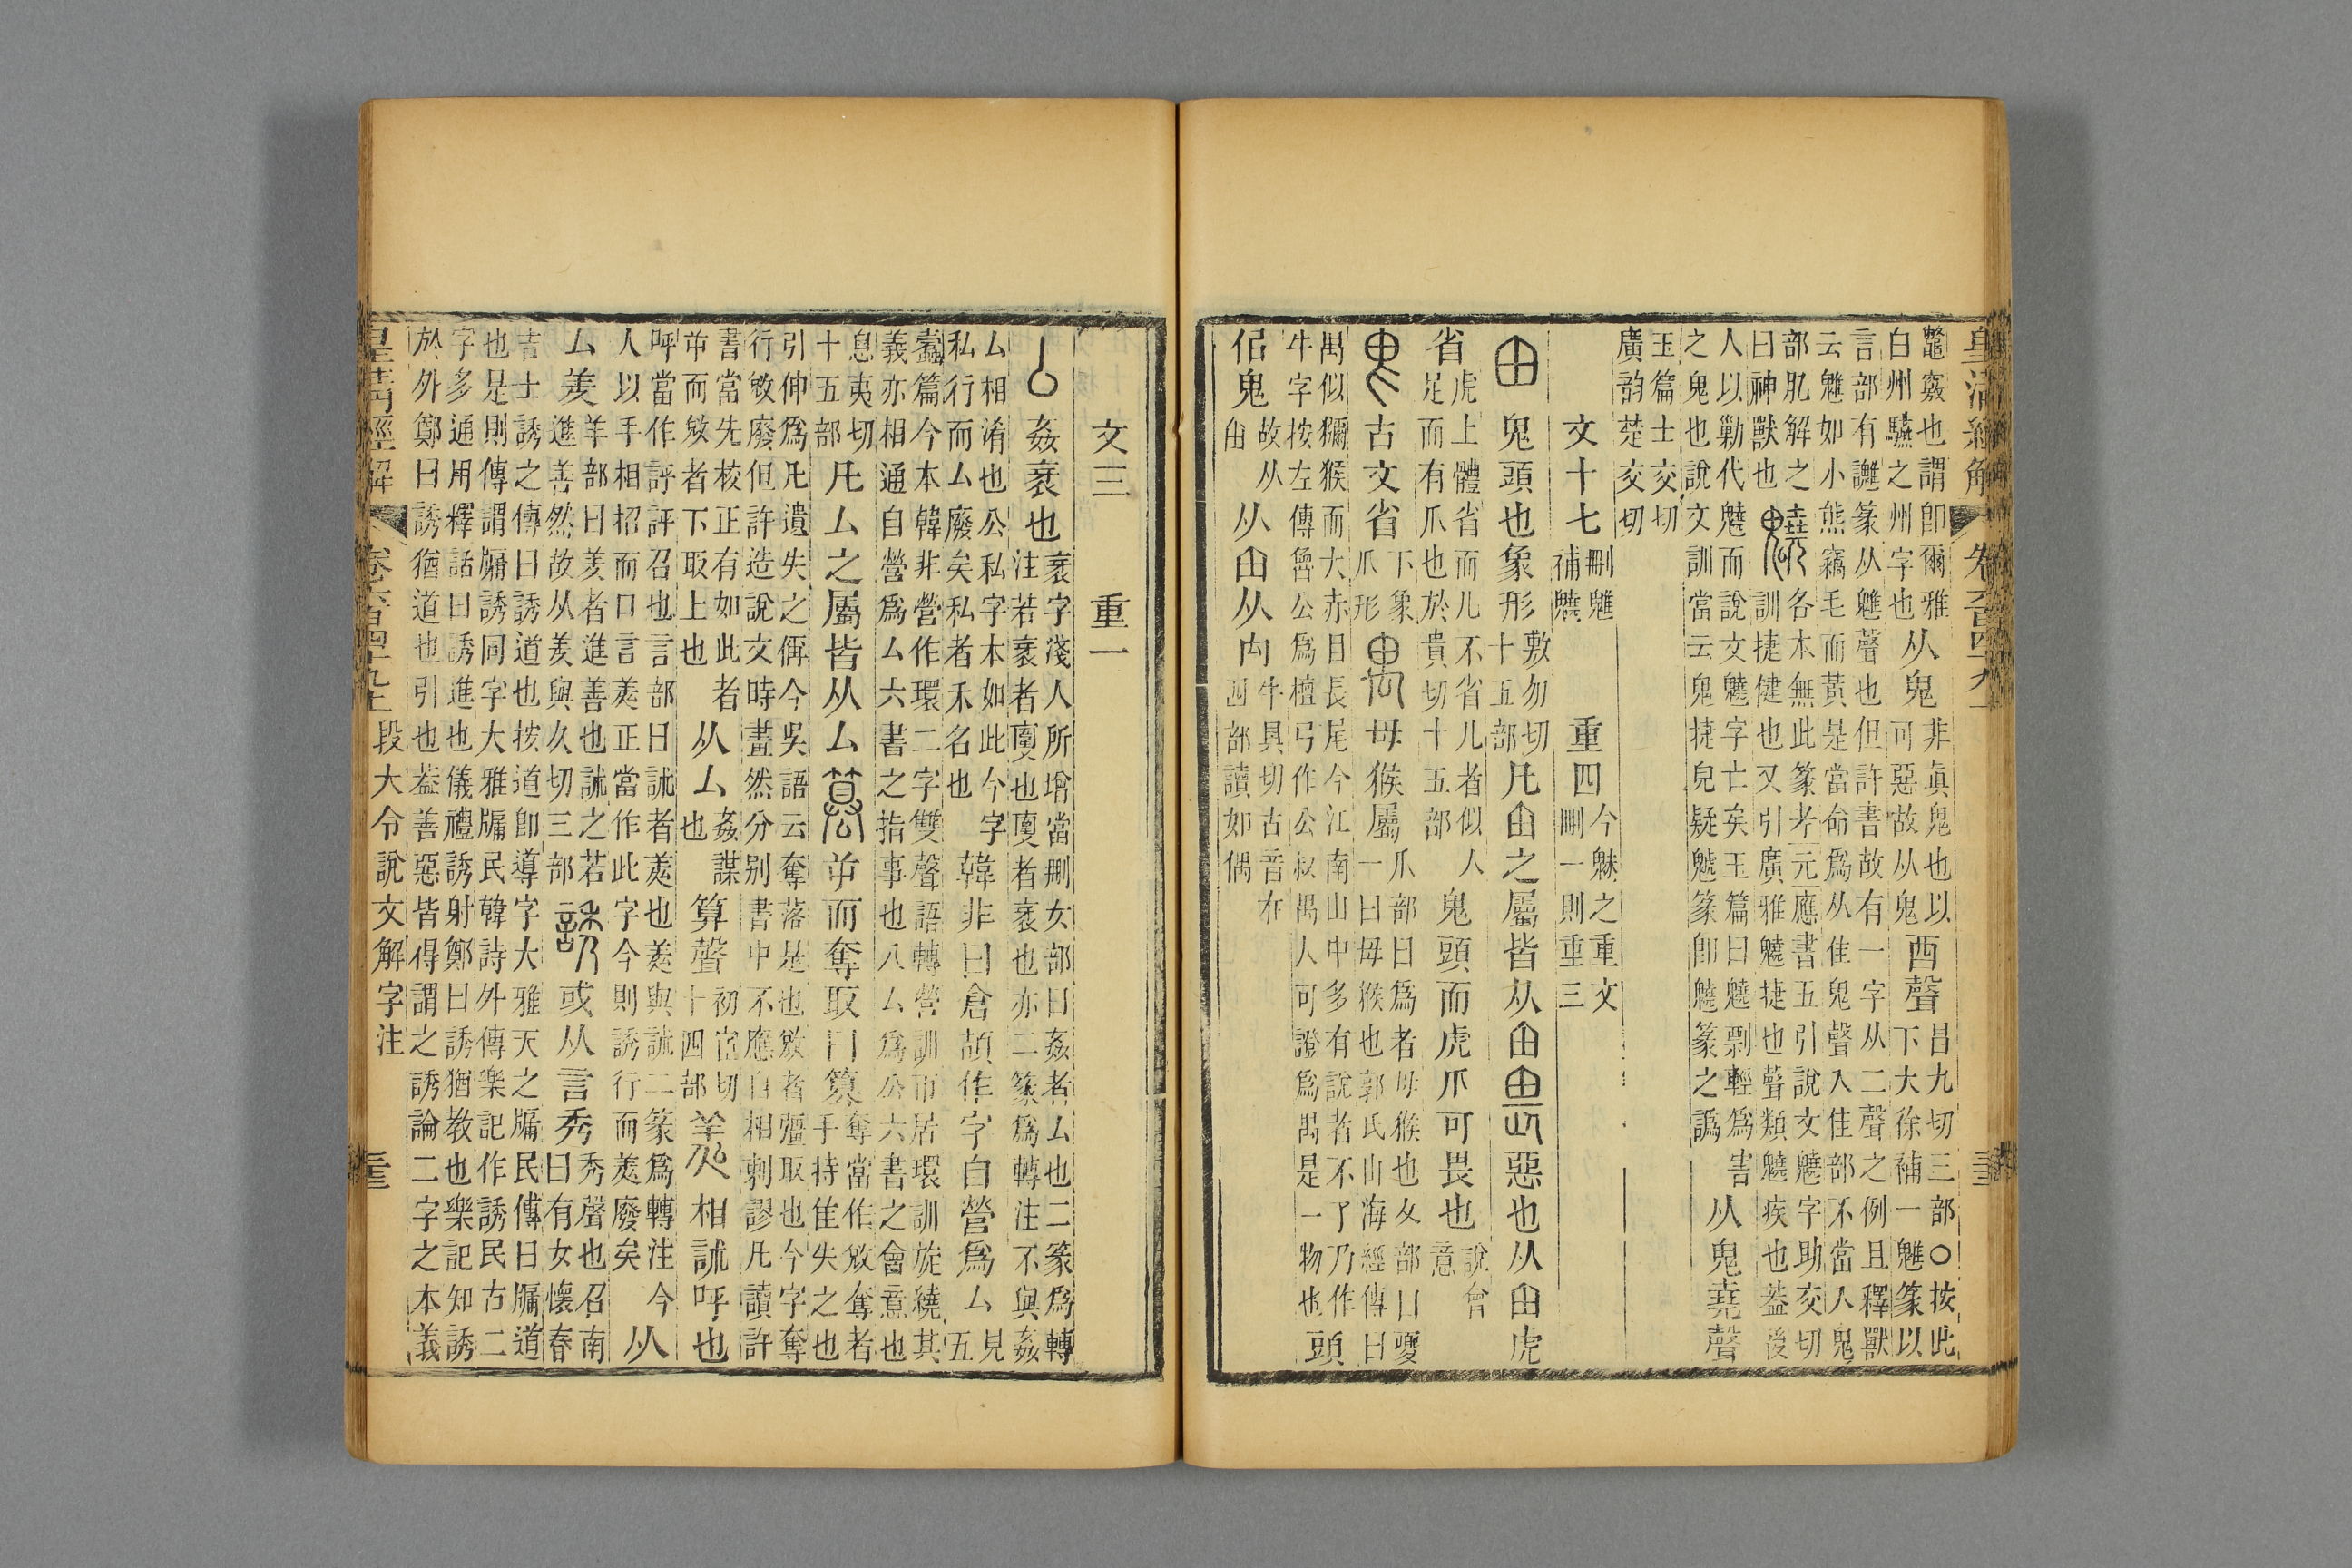 皇清經解 卷六百四十九上
鼈竅也謂卽爾雅
白州驠之州字也
从鬼
非眞鬼也以
可惡故从鬼
酉聲
昌九切三部○按此
下大徐補一魋篆以
言部有讎篆从魋聲也但許書故有一字从二聲之例且釋獸
云魋如小熊竊毛而黃是當命爲从隹鬼聲入隹部不當入鬼
部肍解之
曰神獸也
各本無此篆考元應書五引說文字助交切
訓捷健也又引廣雅捷也聲類疾也葢後
人以勦代而說文字亡矣玉篇曰剽輕爲害
之鬼也說文訓當云鬼捷皃疑篆卽篆之譌
从鬼堯聲
玉篇士交切
廣韵楚交切
文十七
刪魋
補
重四
今魅之重文
刪一則重三
甶 鬼頭也象形
敷勿切
十五部
凡甶之屬皆从甶 畏 惡也从甶虎
省
虎上體省而儿不省儿者似人
足而有爪也於貴切十五部
鬼頭而虎爪可畏也
說會
意
古文省
下象
爪形
禺 母猴屬
爪部曰爲者母猴也夊部曰夒
一曰母猴也郭氏山海經傳曰
禺似獼猴而大赤目長尾今江南山中多有說者不了乃作
牛字按左傳魯公爲檀弓作公叔禺人可證爲禺是一物也
頭
佀鬼
故从
甶
从甶从禸
牛具切古音在
四部讀如偶
文三 重一
厶 姦衺也
衺字淺人所增當刪女部曰姦者厶也二篆爲轉
注若衺者㚄也㚄者衺也亦二篆爲轉注不與姦
厶相淆也公私字本如此今字
私行而厶廢矣私者禾名也
韓非曰倉頡作字自營爲厶
見五
蠹篇今本韓非營作環二字雙聲語轉營訓帀居環訓旋繞其
義亦相通自營爲厶六書之指事也八厶爲公六書之會意也
息夷切
十五部
凡厶之屬皆从厶 篡 屰而奪取曰篡
奪當作敓奪者
手持隹失之也
引伸爲凡遺失之偁今吳語云奪落是也敓者彊取也今字奪
行敓廢但許造說文時畫然分別書中不應自相剌謬凡讀許
書當先校正有如此者
屰而敓者下取上也
从厶
姦謀
也
算聲
初宦切
十四部
羑 相訹呼也
呼當作評評召也言部曰訹者羑也羑與訹二篆爲轉注今
人以手相招而口言羑正當作此字今則誘行而羑廢矣
从
厶羑
羊部曰羑者進善也訹之若
進善然故从羑與久切三部
誘 或从言秀
秀聲也召南
曰有女懷春
吉士誘之傳曰誘道也按道卽導字大雅天之牖民傳曰牖道
也是則傳謂牖誘同字大雅牖民韓詩外傳樂記作誘民古二
字多通用釋詁曰誘進也儀禮誘射鄭曰誘猶教也樂記知誘
於外鄭曰誘猶道也引也葢善惡皆得謂之誘論二字之本義
皇清經解 卷六百四十九上 段大令說文解字注